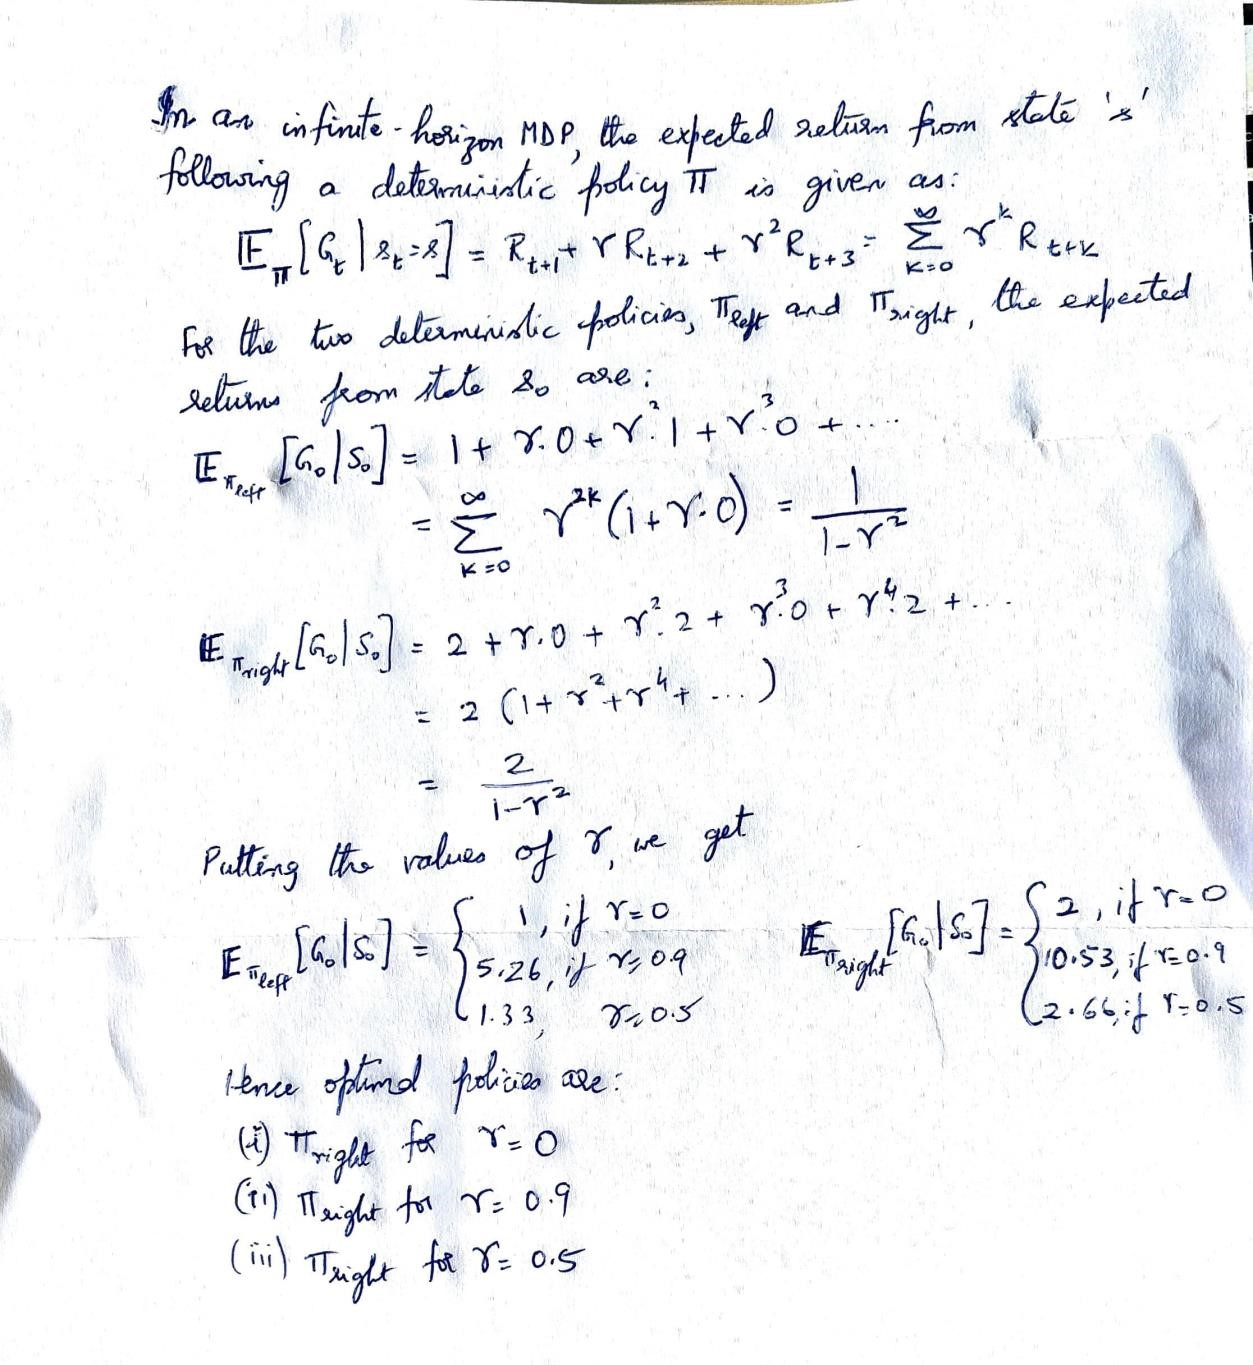 In an infinite-horizon MDP, the expected return from state 's'
following a deterministic policy π is given as:
𝔼_π [G_t | s_t=s] = R_{t+1} + γ R_{t+2} + γ² R_{t+3} = Σ_{k=0}^{∞} γ^k R_{t+k}
For the two deterministic policies, π_left and π_right, the expected
returns from state s₀ are:
𝔼_{π_left} [G₀|S₀] = 1 + γ.0 + γ².1 + γ³.0 + ....
= Σ_{k=0}^{∞} γ^{2k} (1+γ.0) = 1/(1-γ²)
𝔼_{π_right} [G₀|S₀] = 2 + γ.0 + γ².2 + γ³.0 + γ⁴.2 + ...
= 2 (1+ γ²+γ⁴+ ...)
= 2/(1-γ²)
Putting the values of γ, we get
E_{π_left} [G₀|S₀] = { 1, if γ=0 𝔼_{π_right} [G₀|S₀] = { 2, if γ=0
5.26, if γ=0.9 10.53, if γ=0.9
1.33, γ=0.5 2.66, if γ=0.5
Hence optimal policies are:
(i) π_right for γ=0
(ii) π_right for γ= 0.9
(iii) π_right for γ= 0.5